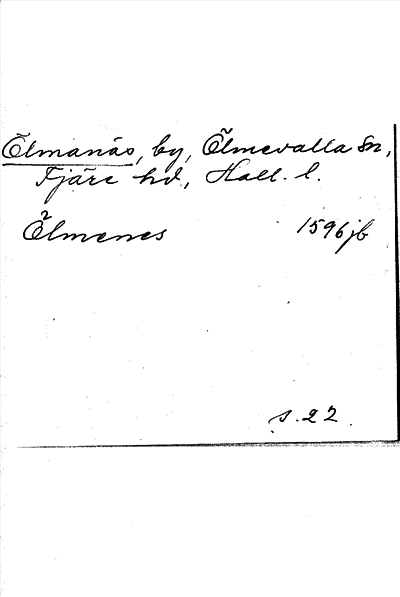 Ölmanäs, by, Ölmevalla sn,
Fjäre hd., Hall. l.
Ölmenes 1596 jb
s. 22.